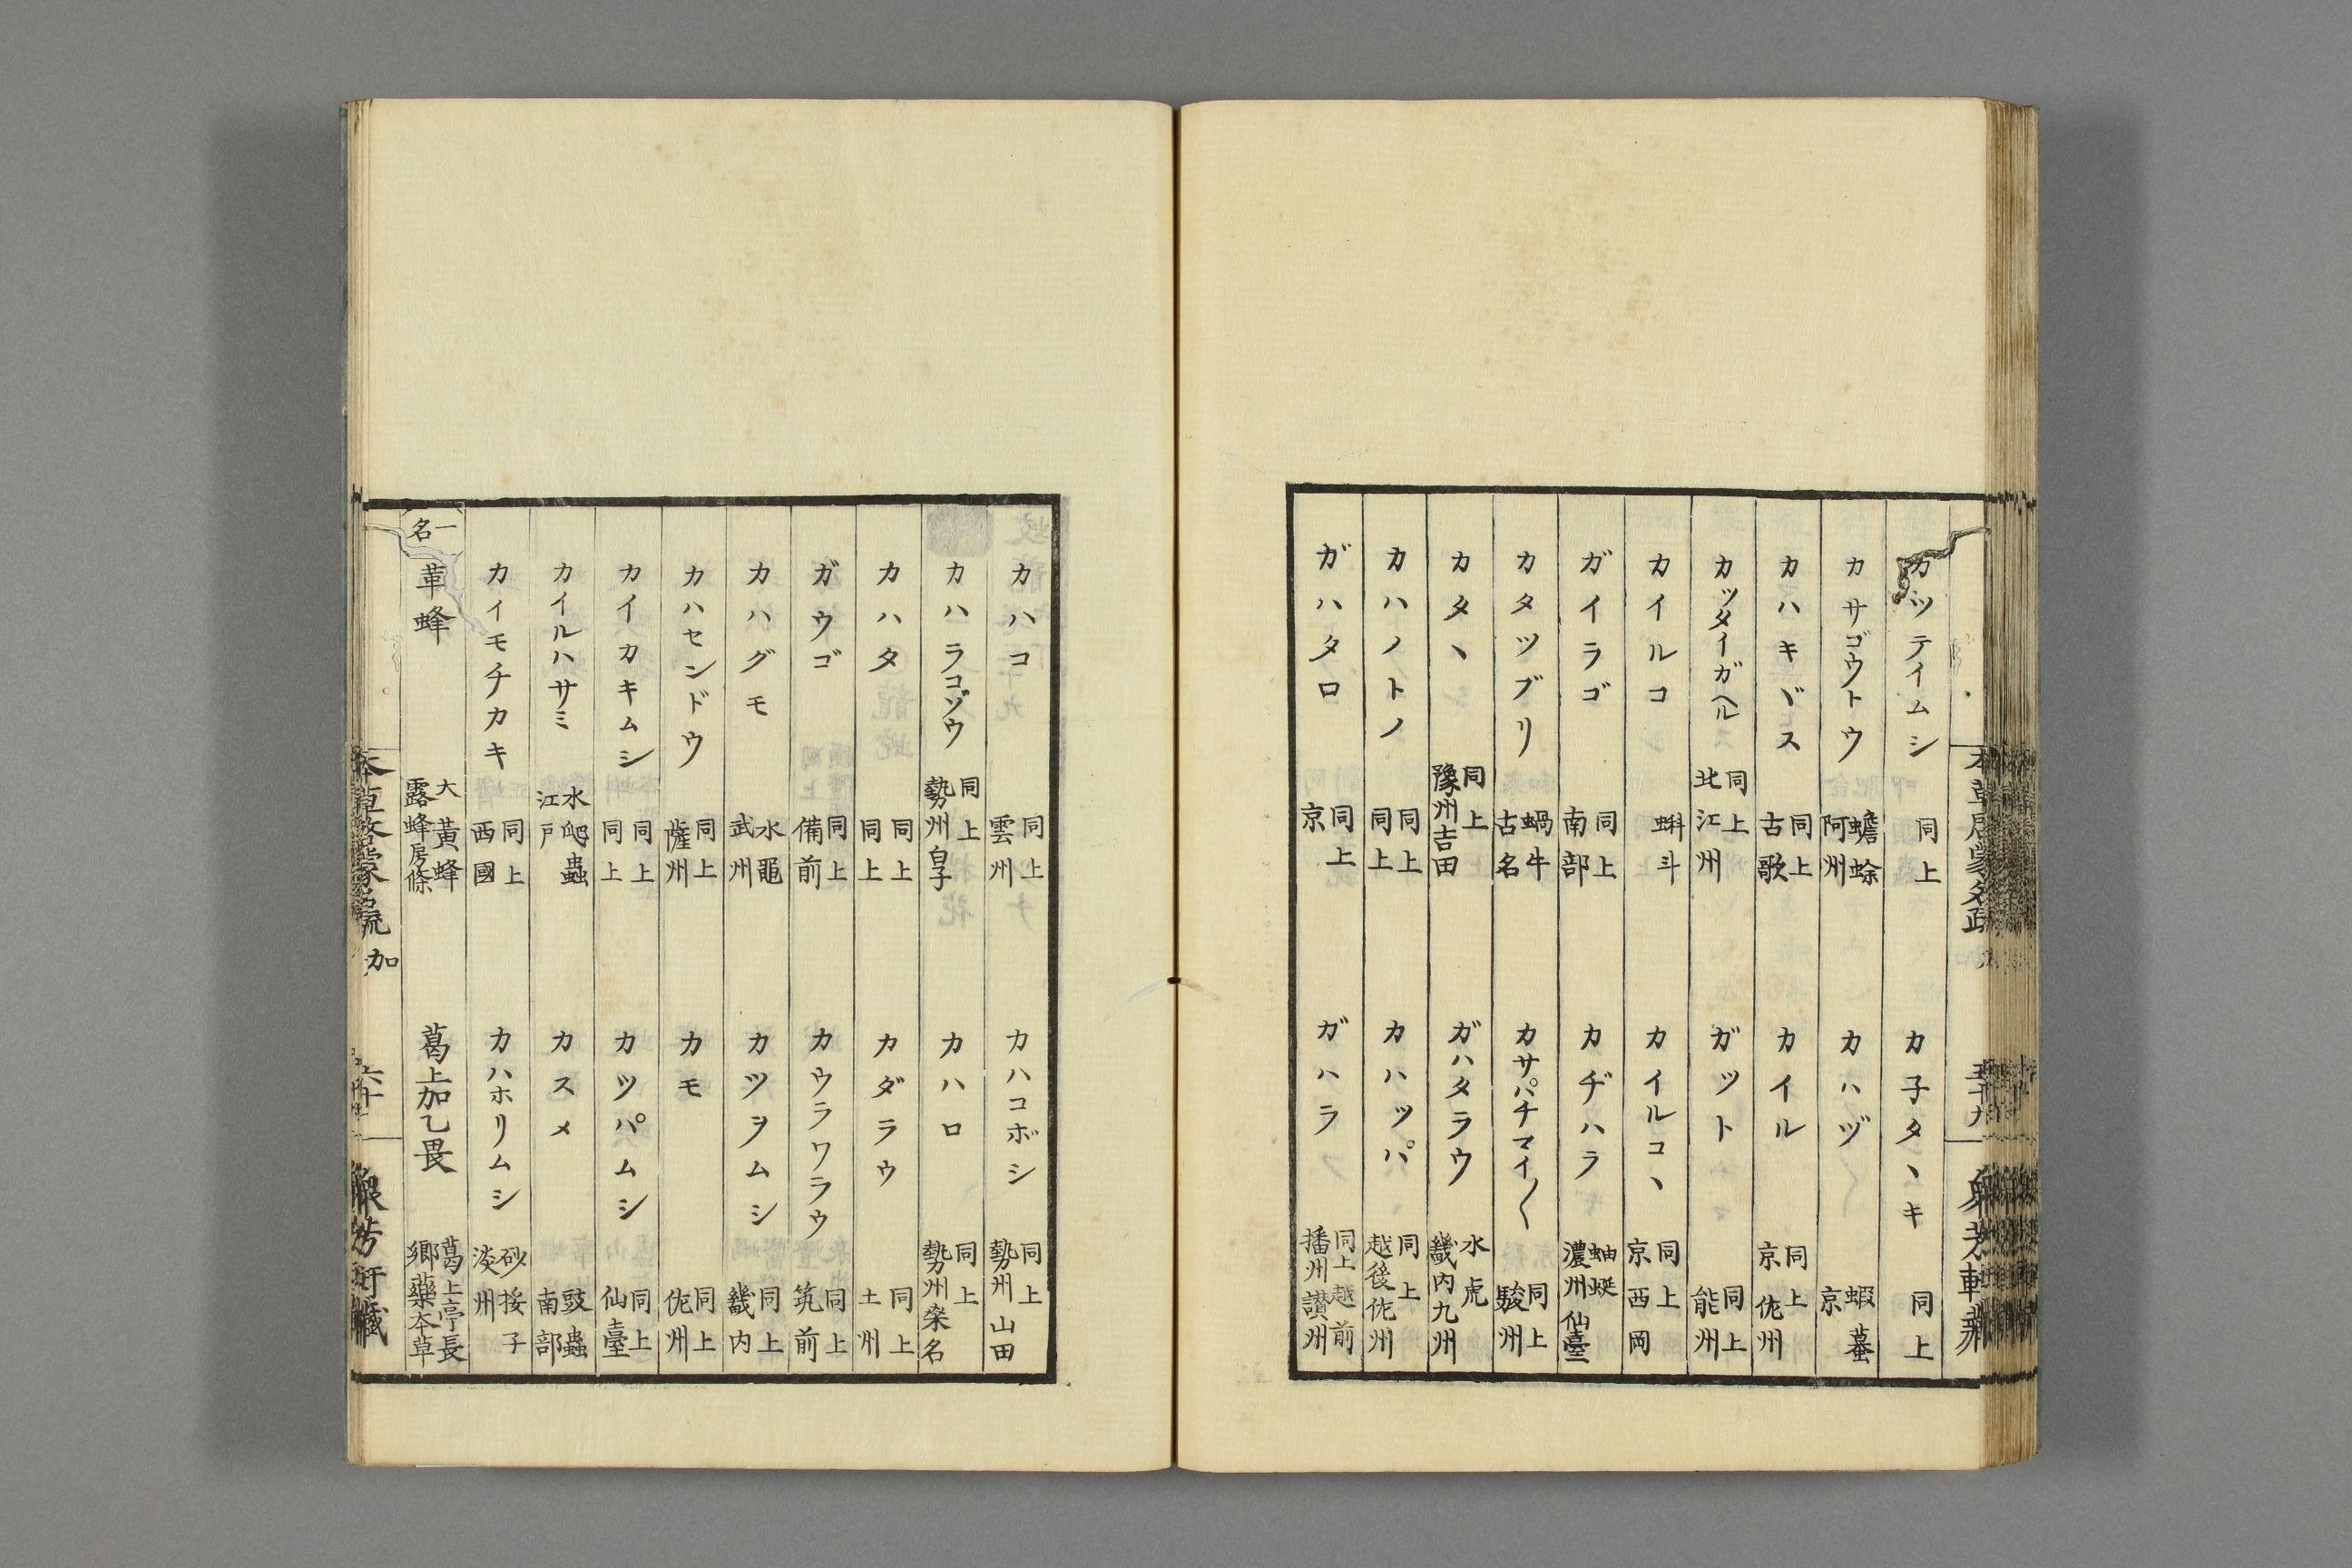 カツテイムシ 同上 カ子タヽキ 同上
カサゴウトウ 蟾蜍 阿州 カハヅ 蝦蟇 京
カハキヾス 同上 古歌 カイル 同上 京 佐州
カッタイガヘル 同上 北江州 ガット 同上 能州
カイルコ 蝌斗 カイルコヽ 同上 京西岡
ガイラゴ 同上 南部 カヂハラ 蚰蜒 濃州 仙臺
カタツブリ 蝸牛 古名 カサパチマイ〱 同上 駿州
カタヽ 同上 豫州吉田 ガハタラウ 水虎 畿内九州
カハノトノ 同上 同上 カハッパ 同上 越後佐州
ガハタロ 同上 京 ガハラ 同上越前 播州讃州
カハコ 同上 雲州 カハコボシ 同上 勢州山田
カハラコゾウ 同上 勢州白子 カハロ 同上 勢州桑名
カハタ 同上 同上 カダラウ 同上 土州
ガウゴ 同上 備前 カウラワラウ 同上 筑前
カハグモ 水黽 武州 カツヲムシ 同上 畿内
カハセンドウ 同上 薩州 カモ 同上 佐州
カイカキムシ 同上 同上 カツパムシ 同上 仙臺
カイルハサミ 水爬蟲 江戸 カスメ 豉蟲 南部
カイモチカキ 同上 西國 カハホリムシ 砂挼子 淡州
一名 革蜂 大黃蜂 露蜂房條 葛上加乙畏 葛上亭長 郷藥本草
本草啓蒙名疏 加 六十 衆芳軒藏